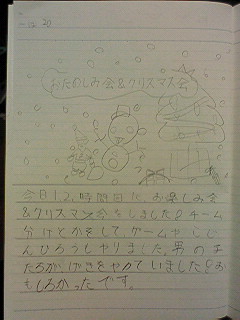 12/20
おたのしみ会&クリスマス会
今日1、2、時間目に、お楽しみ会
&クリスマス会をしました。チーム
分けとかをして、ゲームやじじ
んひろうしやりました。男の子
たちが、げきをやっていました。お
もしろかったです。